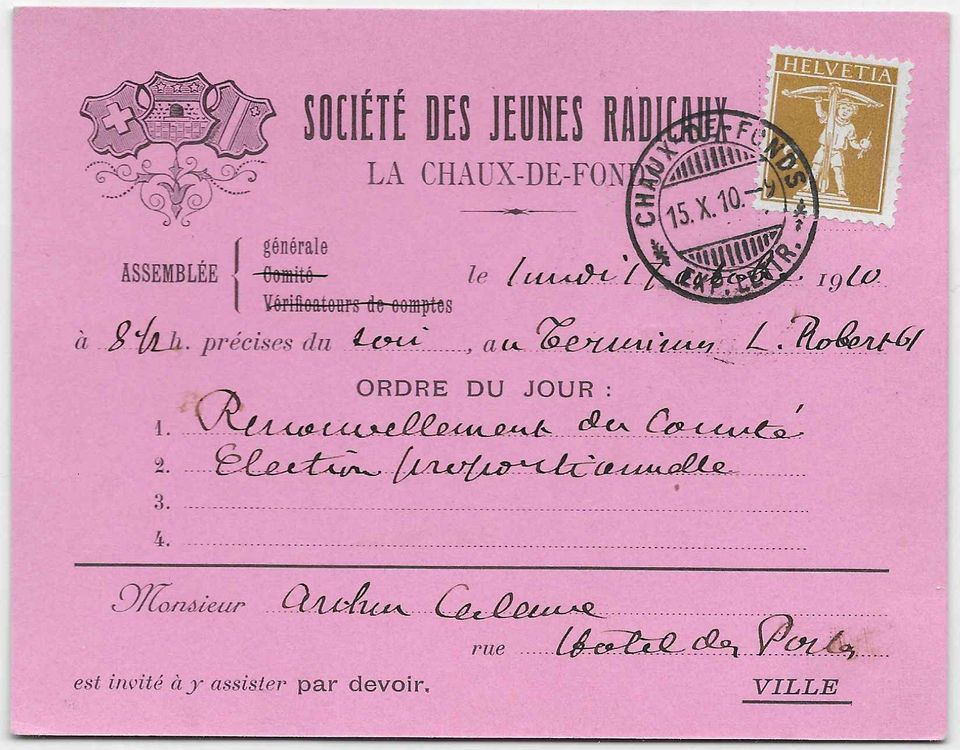 HELVETIA
SOCIÉTÉ DES JEUNES RADICAUX
LA CHAUX-DE-FONDS
CHAUX-DE-FONDS
15.X.10.-9
EXP. LETTR.
ASSEMBLÉE
générale
Comité
Vérificateurs de comptes
le lundi 17 1910
à 8 1/2 h. précises du soir, au Terminus L. Robert 61
ORDRE DU JOUR :
1. Renouvellement du Comité
2. Election proportionnelle
3.
4.
Monsieur Arthur
rue Hôtel des Postes
est invité à y assister par devoir.
VILLE